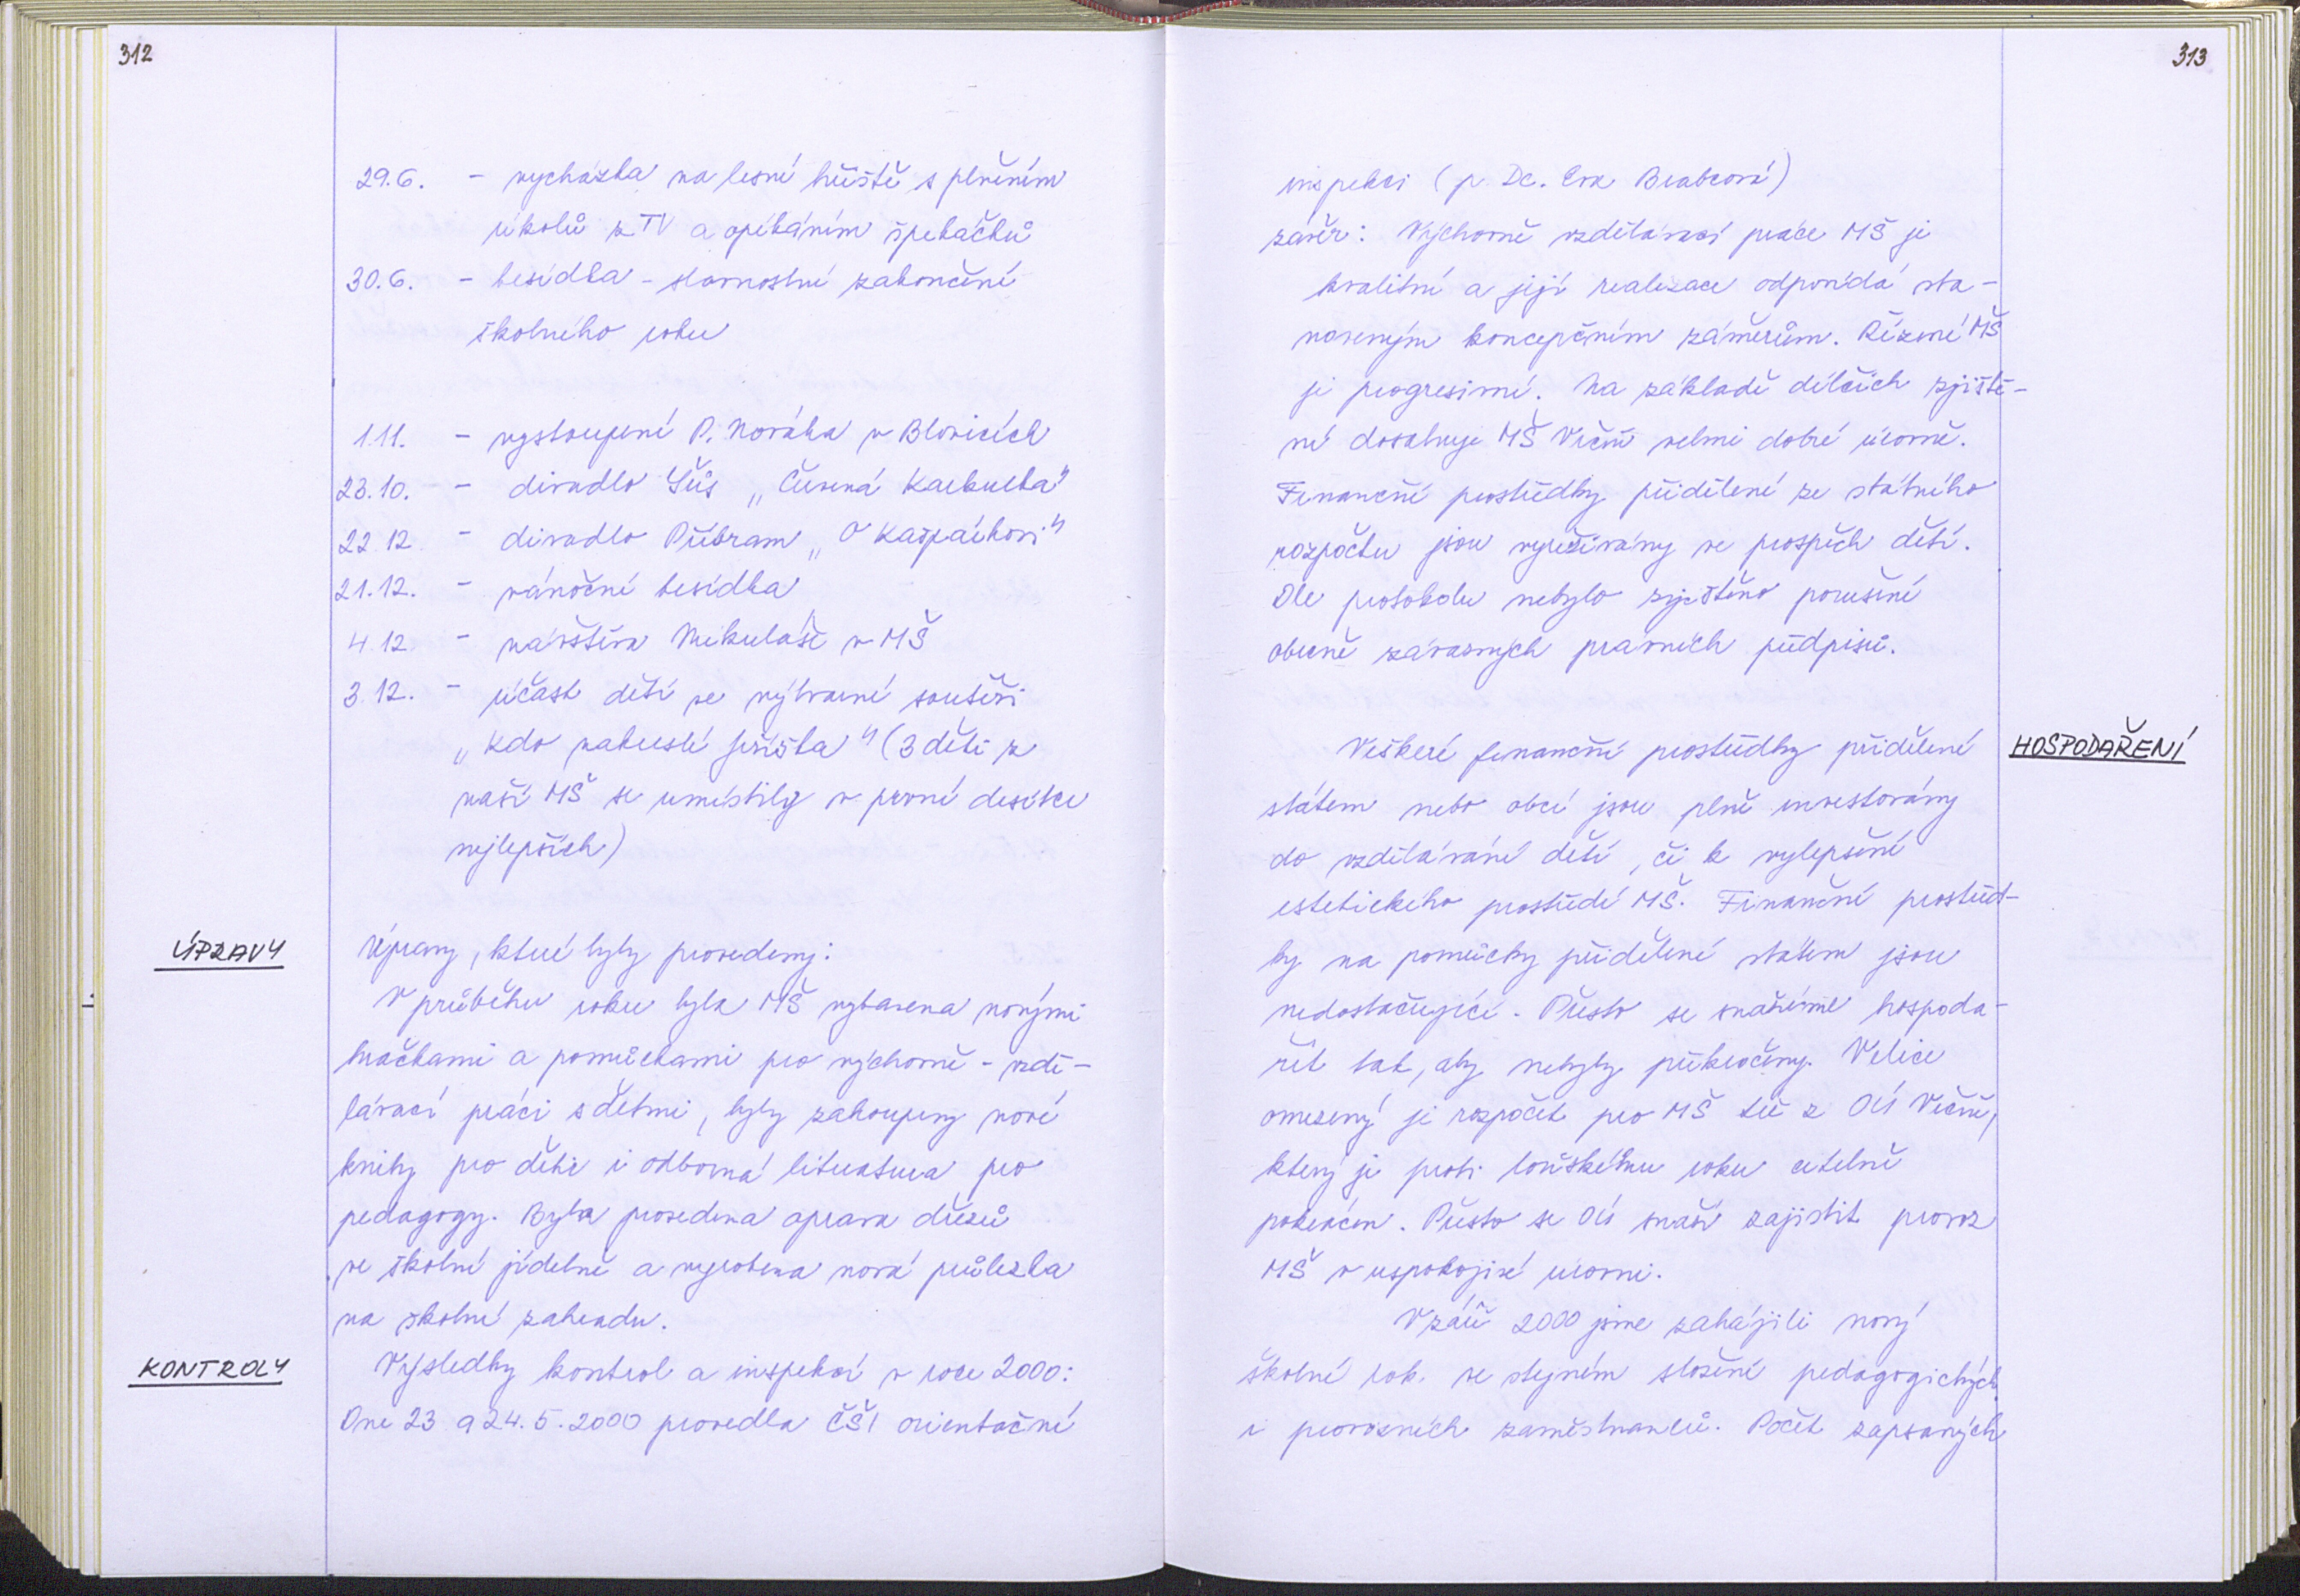 312
29.6. - vycházka na lesní hřiště s plněním
úkolů z TV a opékáním špekáčků
30.6. - besídka - slavnostní zakončení
školního roku
1.11. - vystoupení P. Nováka v Blovicích
23.10. - divadlo Šůs „Červená Karkulka"
22.12. - divadlo Příbram „O Kašpárkovi"
21.12. - vánoční besídka
4.12. - návštěva Mikuláše v MŠ
3.12. - účast dětí ve výtvarné soutěži
„Kdo nakreslí Ježíška" (3 děti z
naší MŠ se umístily v první desítce
nejlepších)
ÚPRAVY
Úpravy, které byly provedeny:
V průběhu roku byla MŠ vybavena novými
hračkami a pomůckami pro výchovně - vzdě-
lávací práci s dětmi, byly zakoupeny nové
knihy pro děti i odborná literatura pro
pedagogy. Byla provedena oprava dřezů
ve školní jídelně a vyrobena nová průlezka
na školní zahradu.
KONTROLY
Výsledky kontrol a inspekcí v roce 2000:
Dne 23 a 24.5.2000 provedla ČŠI orientační
313
inspekci (p. Dr. Eva Brabcová)
závěr: Výchovně vzdělávací práce MŠ je
kvalitní a její realizace odpovídá sta-
noveným koncepčním záměrům. Řízení MŠ
je progresivní. Na základě dílčích zjiště-
ní dosahuje MŠ Vrčeň velmi dobré úrovně.
Finanční prostředky přidělené ze státního
rozpočtu jsou využívány ve prospěch dětí.
Dle protokolu nebylo zjištěno porušení
obecně závazných právních předpisů.
HOSPODAŘENÍ
Veškeré finanční prostředky přidělené
státem nebo obcí jsou plně investovány
do vzdělávání dětí, či k vylepšení
estetického prostředí MŠ. Finanční prostřed-
ky na pomůcky přidělené státem jsou
nedostačující. Přesto se snažíme hospoda-
řit tak, aby nebyly překročeny. Velice
omezený je rozpočet pro MŠ též z OÚ Vrčeň,
který je proti loňskému roku citelně
pokrácen. Přesto se OÚ snaží zajistit provoz
MŠ v uspokojivé úrovni.
V září 2000 jsme zahájili nový
školní rok ve stejném složení pedagogických
i provozních zaměstnanců. Počet zapsaných